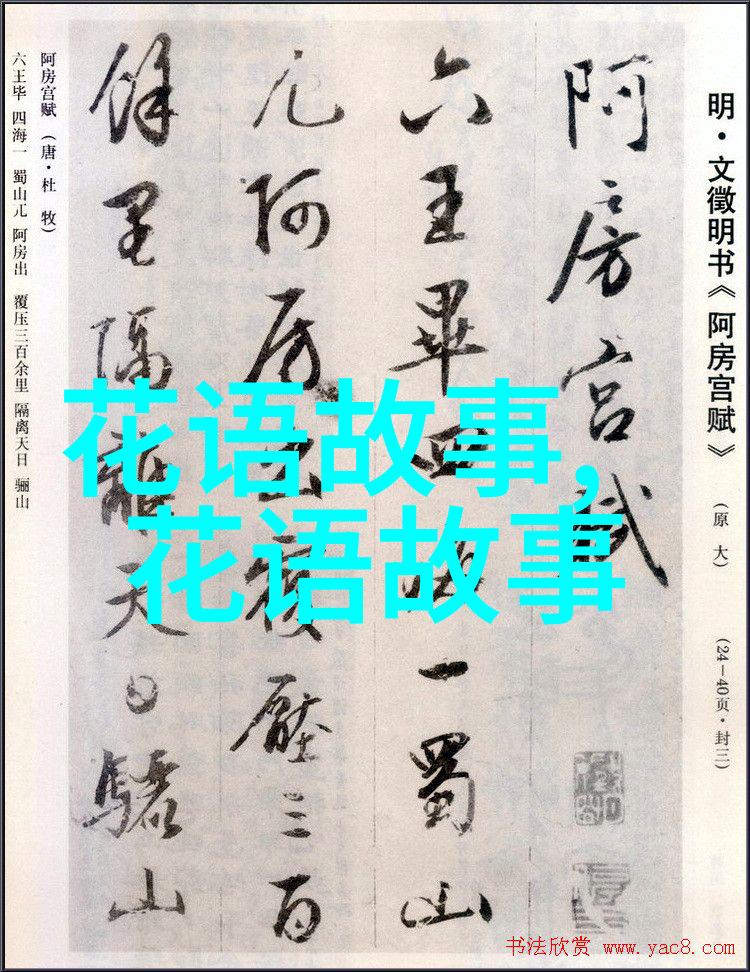 明·文徵明书《阿房宫赋》（原大）（24—40页·封三）
阿房宫赋
六王畢四海一蜀山
兀阿房出覆壓三百
餘里隔離天日驪山
阿房宫赋（唐·杜 牧）
六王毕 四海一 蜀山兀 阿房出 覆压三百余里 隔离天日 骊山
花语故事,
花语故事
书法欣赏 www.yac8.com